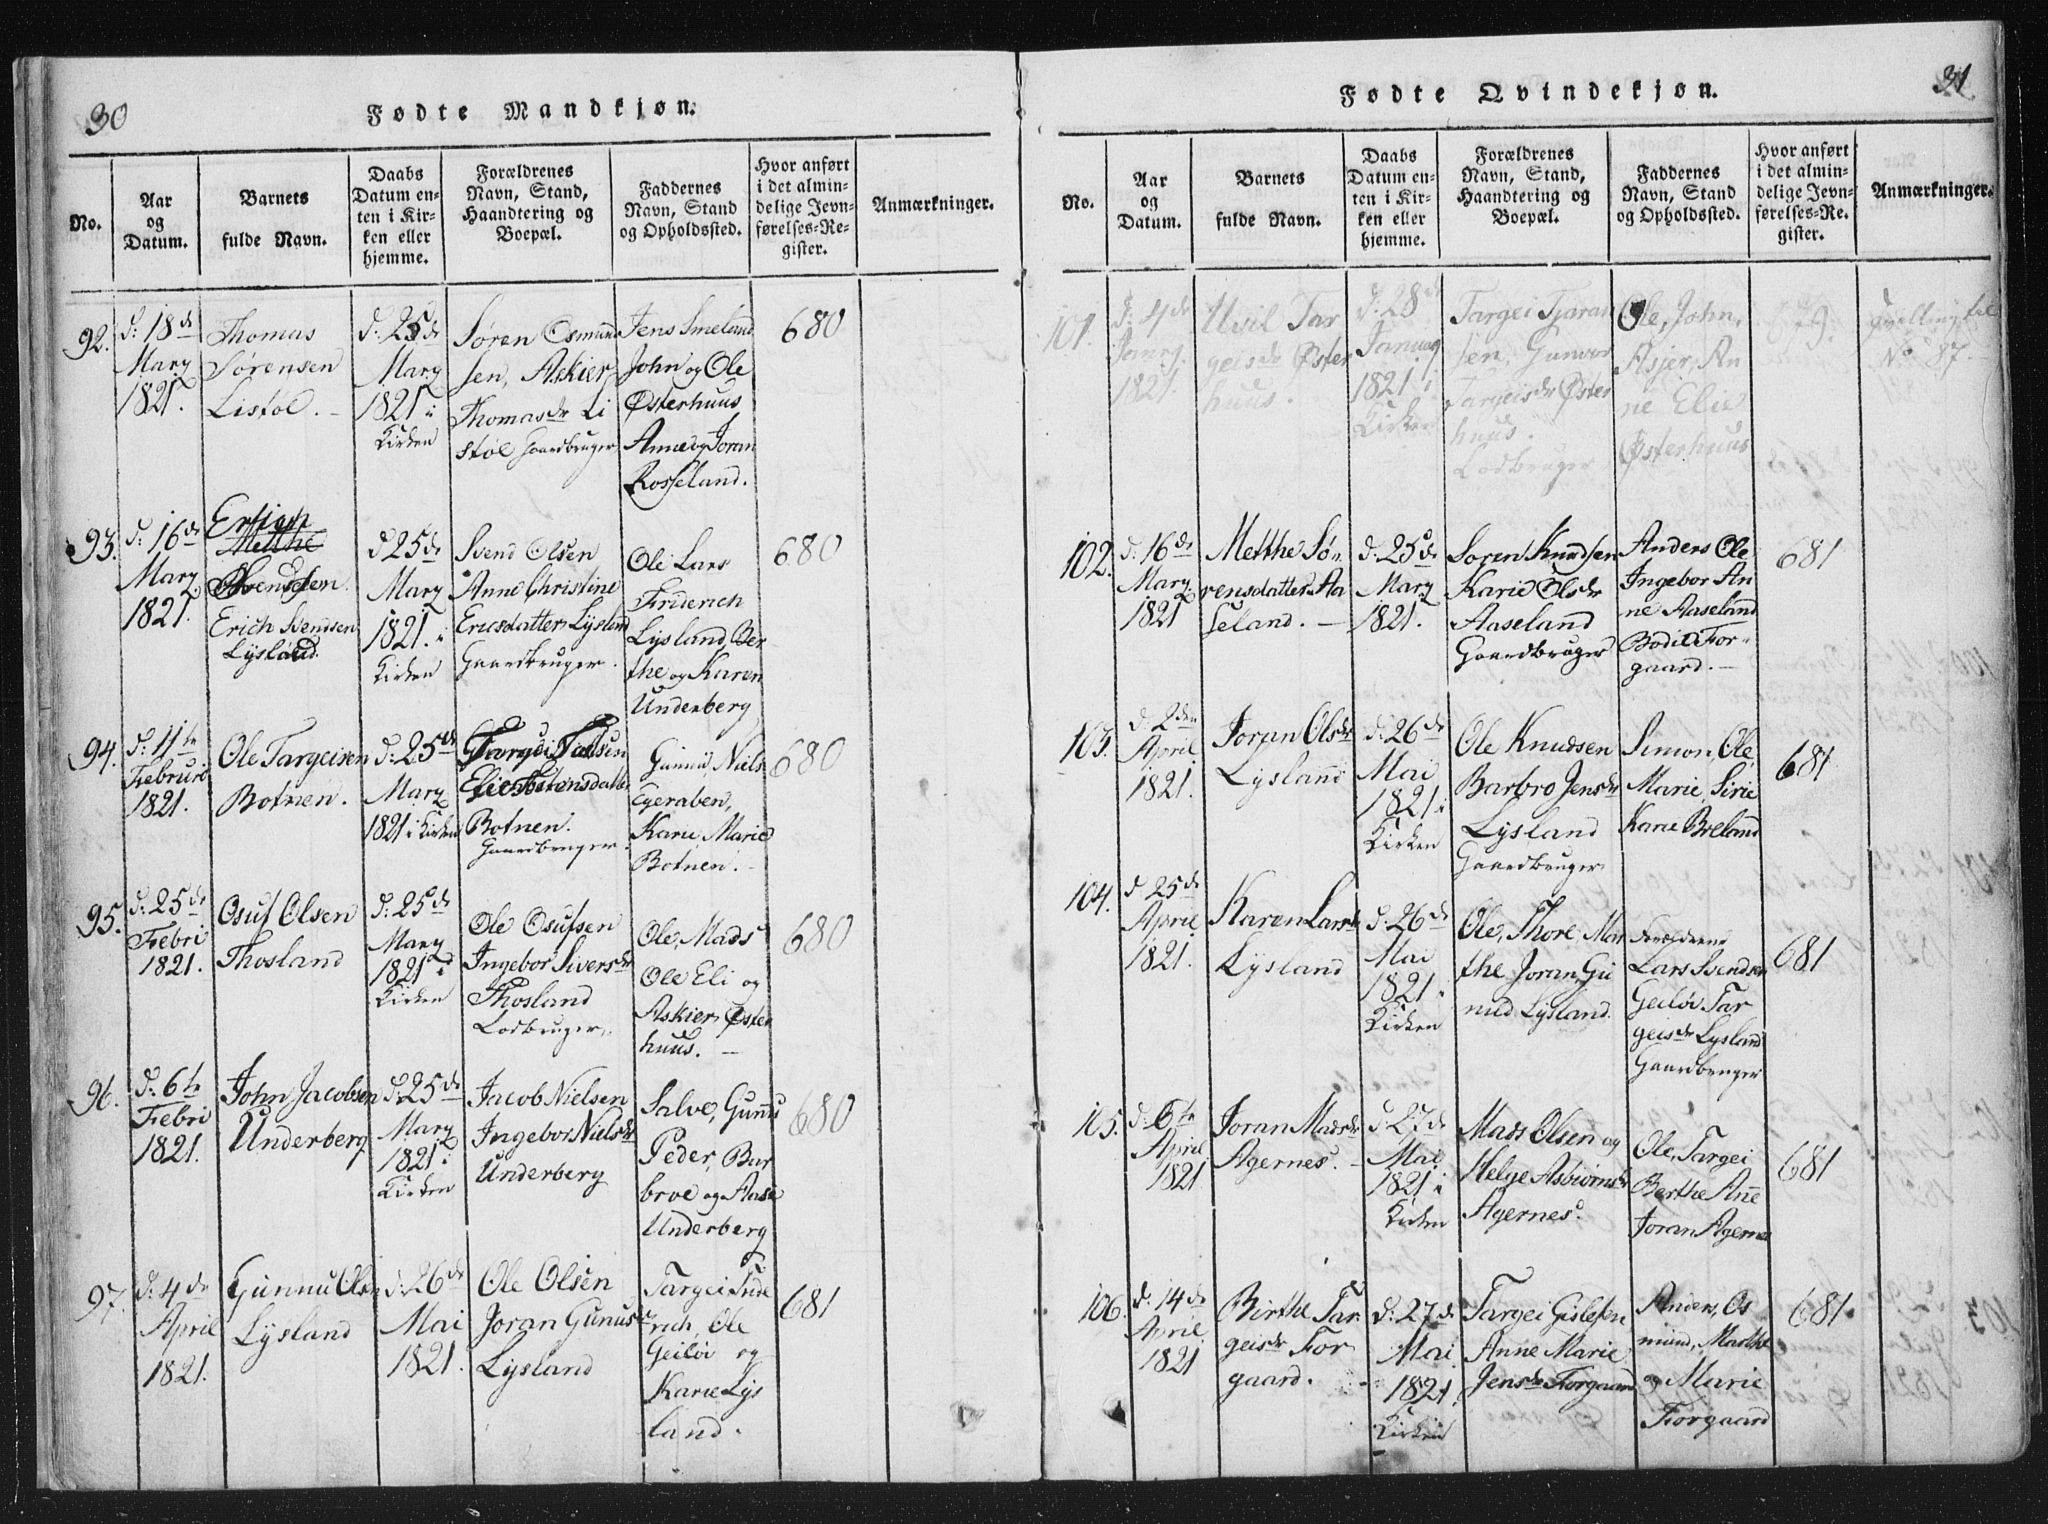 30
Fødte Mandkjøn.
No.
Aar
og
Datum.
Barnets
fulde Navn.
Daabs
Datum en-
ten i Kir-
ken eller
hjemme.
Forældrenes
Navn, Stand,
Haandtering og
Boepæl.
Faddernes
Navn, Stand
og Opholdssted.
Hvor anført
i det almin-
delige Jevn-
førelses-Re-
gister.
Anmærkninger.
92.
d: 18de
Marz
1821.
Thomas
Sørensen
Listøl. –
d: 25de
Marz
1821 i
Kirken
Søren Osmund
sen, Askier
Thomasdr Li
støl Gaardbruger
Jens Smeland
John og Ole
Østerhuus
Anne og Joran
Rosseland.
680
93.
d: 16de
Marz
1821.
Erich
Metthe
Svendsen
Erich Svendsen
Lysland.
d 25de
Marz
1821. i
Kirken
Svend Olsen
Anne Christine
Ericsdatter Lysland
Gaardbruger.
Ole Lars
Friderich
Lysland, Ber
the og Karen
Underberg
680
94.
d: 11te
Februri
1821.
Ole Targeisen
Botnen.
d: 25de
Marz
1821 i Kirken
Botnen.
Gaardbruger.
Gunnu, Niels
Egeraben,
Karie, Marie
Botnen. –
680
95.
d: 25de
Febri
1821.
Osuf Olsen
Thosland
d: 25de
Marz
1821 i
Kirken
Ole Osufsen
Ingebor Siversdr
Thosland
Lodbruger.
Ole, Mads
Ole Eli og
Askier Øster
huus. –
680
96.
d: 6te
Febri
1821.
John Jacobsen
Underberg
d: 25de
Marz
1821 i
Kirken
Jacob Nielsen
Ingebor Nielsdr
Underberg
Salve, Gunnu
Peder, Bar
broe og Aase
Underberg
680
97.
d: 4de
April
1821.
Gunnu Olsen
Lysland
d: 26de
Mai
1821.
Ole Olsen
Joran Gunusdr
Lysland
Targei Fride
rich, Ole
Geiløi og
Karie Lys
land.
681
31
Fødte Qvindekjøn.
No.
Aar
og
Datum.
Barnets
fulde Navn.
Daabs
Datum en-
ten i Kir-
ken eller
hjemme.
Forældrenes
Navn, Stand,
Haandtering og
Boepæl.
Faddernes
Navn, Stand
og Opholdssted.
Hvor anført
i det almin-
delige Jevn-
førelses-Re-
gister.
Anmærkninger.
101.
d: 4de
1821.
Tar
geisdr Øster
huus.
d: 28de
Januar
1821 i
Kirken
Targei Tjaran
sen, Gunvor
Targeisdr Øster
huus.
Lodbruger
Ole, John,
Asjer, An
ne Elie
Østerhuus
Tvilling til
No 87.
102.
d: 16de
Marz
1821
Metthe Sø-
rensdatter Aa
seland. –
d: 25de
Marz
1821.
Soren Knudsen
Karie Olsdr
Aaseland
Gaardbruger
Anders Ole
Ingebor An
ne Aaseland
Bodil For-
gaard. –
681
103.
d. 2den
April
1821.
Joran Olsdr
Lysland
d: 26de
Mai
1821 i
Kirken
Ole Knudsen
Barbro Jensdr
Lysland
Gaardbruger
Simon, Ole,
Marie, Sirie
Karie Breland
681.
104.
d. 25de
April
1821.
Karen Larsdr
Lysland
d: 26de
Mai
1821 i
Kirken
Ole, Thore, Mar
the Joran, Gu
nild Lysland.
Forældrene
Lars Svendsen
Geiløi Tar
geisdr Lysland
Gaardbruger
681
105.
d: 6te
April
1821
Joran Madsdr
Agernes. –
d: 27de
Mai
1821 i
Kirken
Mads Olsen og
Helge Asbiørnsdr
Agernes.
Ole, Targei
Berthe Anne
Joran Agernes
681
106.
d. 14de
April
1821
Birthe Tar
geisdr For
gaard.
d: 27de
Mai
1821.
Kirken
Targei Gislefsen
Anne Marie
Jensdr Forgaard
Anders, Os
mund, Marthe
og Marie
Forgaard
681